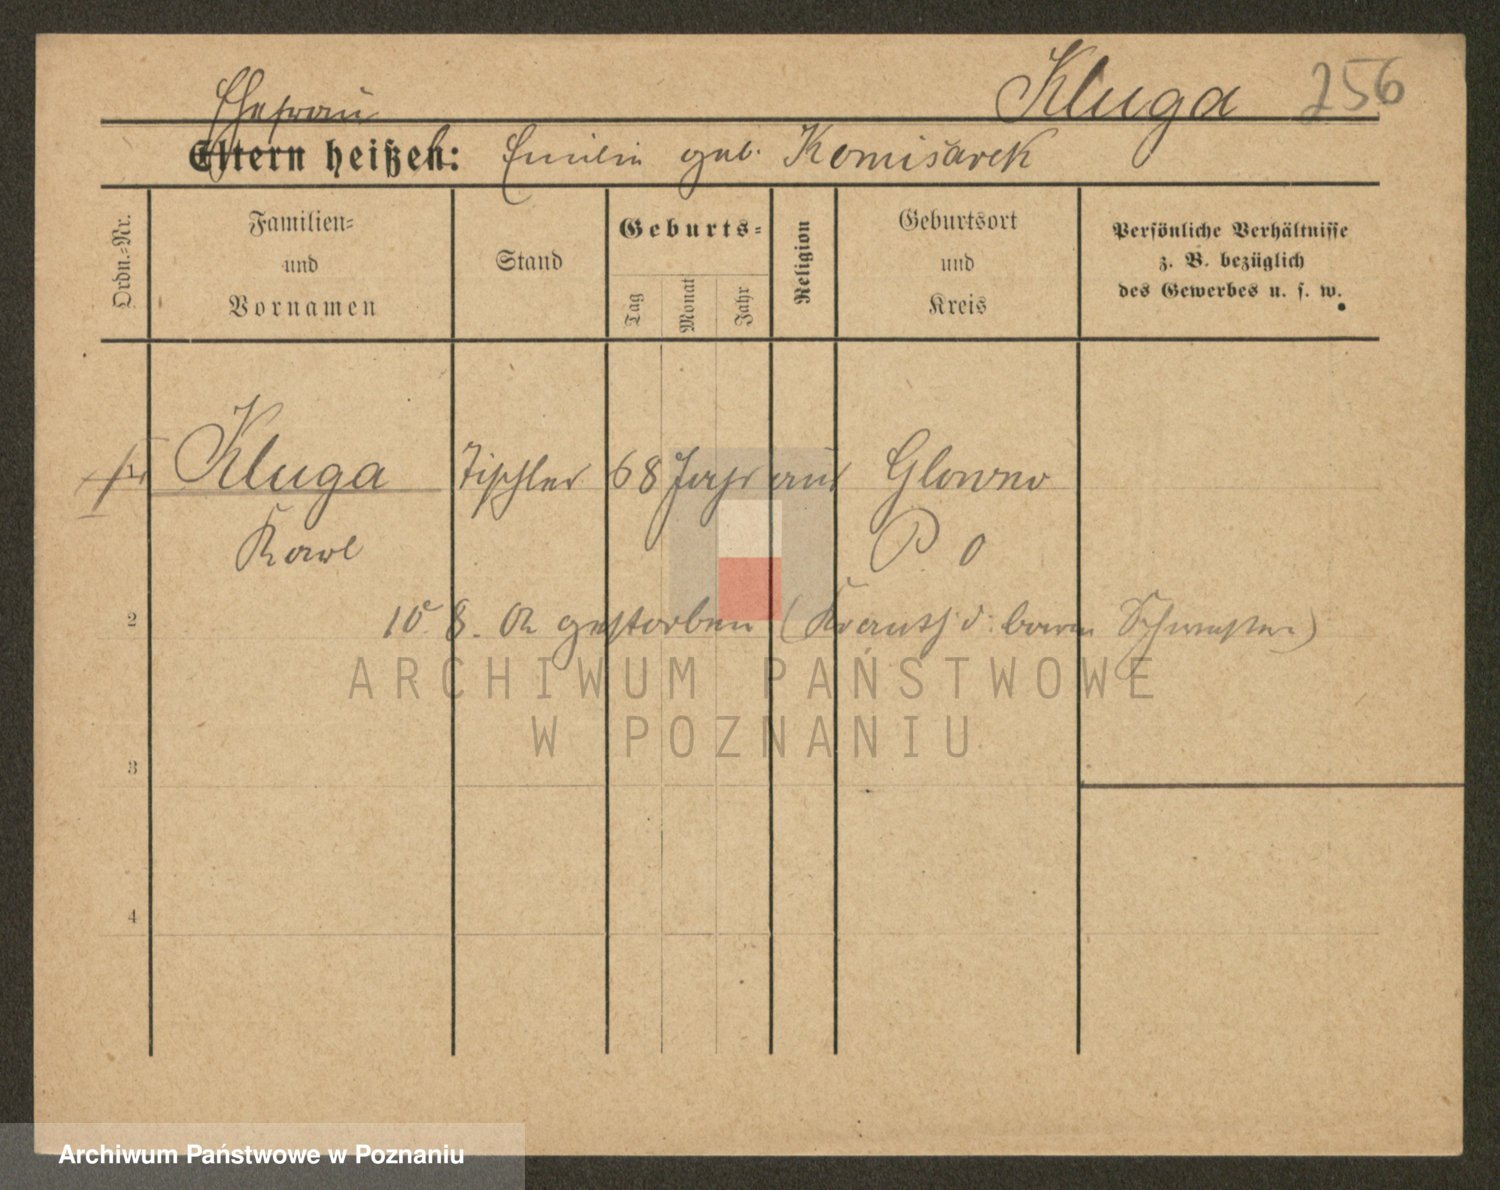 Kluga 256
Ehefrau
Eltern heißen: Emilie geb. Komisarek
Ordn.-Nr.
Familien-
und
Vornamen
Stand
Geburts-
Tag
Monat
Jahr
Religion
Geburtsort
und
Kreis
Persönliche Verhältnisse
z. B. bezüglich
des Gewerbes u. s. w.
1 Kluga Tischler 68 Jahr aus Glowno
Karl P. O
2 10. 8. 02 gestorben (Krankh. d. barm Schwestern)
3
4
ARCHIWUM PAŃSTWOWE
W POZNANIU
Archiwum Państwowe w Poznaniu